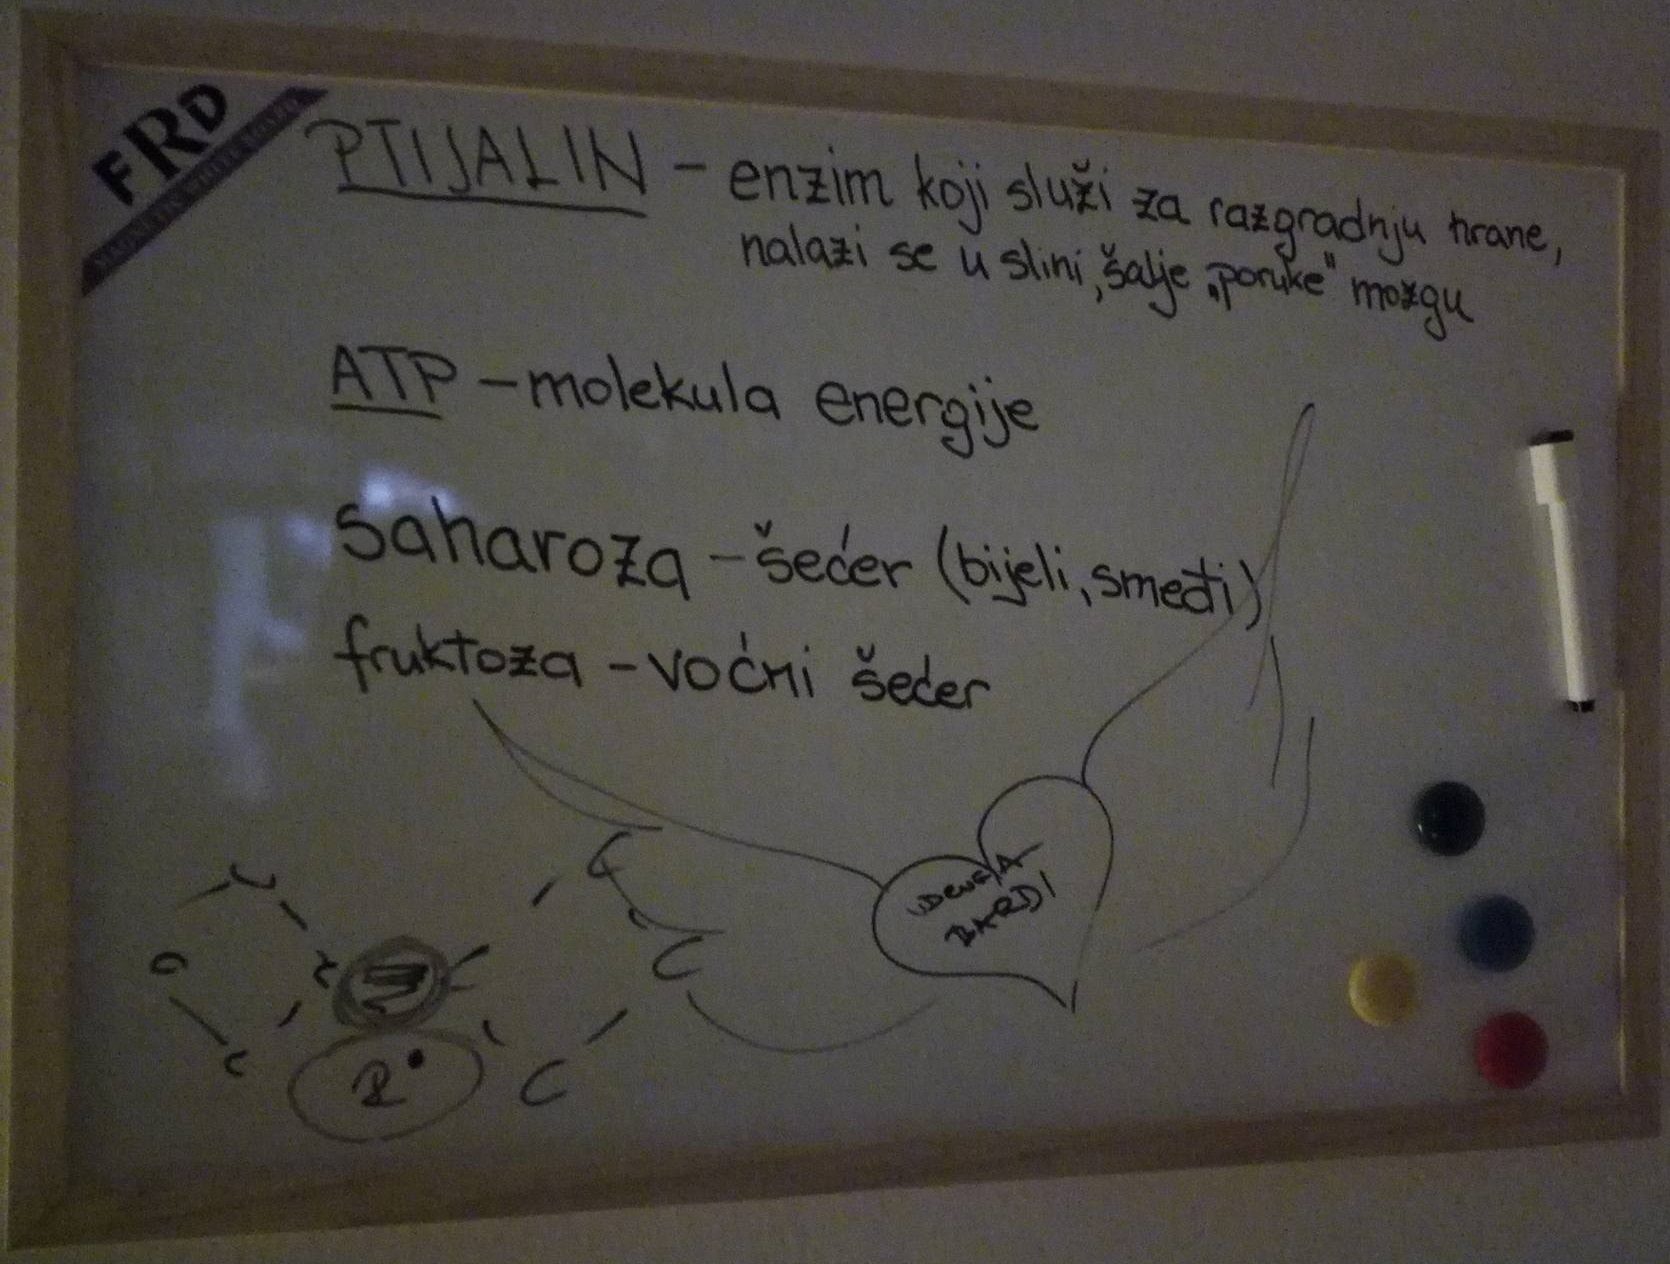 FRD
PTIJALIN – enzim koji služi za razgradnju hrane,
nalazi se u slini, šalje „poruke" mozgu
ATP – molekula energije
saharoza – šećer (bijeli, smeđi)
fruktoza – voćni šećer
BARDI
R•